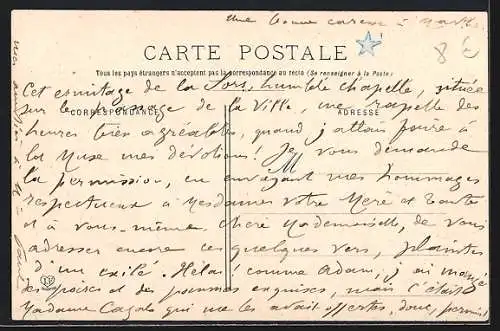 une bonne caresse à
CARTE POSTALE
Tous les pays étrangers n'acceptent pas la correspondance au recto (Se renseigner à la Poste)
Cet ermitage de la humble chapelle, située
sur le passage de la Ville, me rappelle des
CORRESPONDANCE
ADRESSE
heures très agréables, quand j'allais faire à
la Muse mes dévotions! Je vous demande
M
la permission, en envoyant mes hommages
respectueux à Mesdames votre Mère et Tante
et à vous-même chère Mademoiselle, de vous
adresser encore ces quelques vers, plaintes
d'un exilé. Hélas! comme Adam, j'ai mangé
des poires et des pommes exquises, mais c'était
Madame qui me les avait offertes, donc, permis